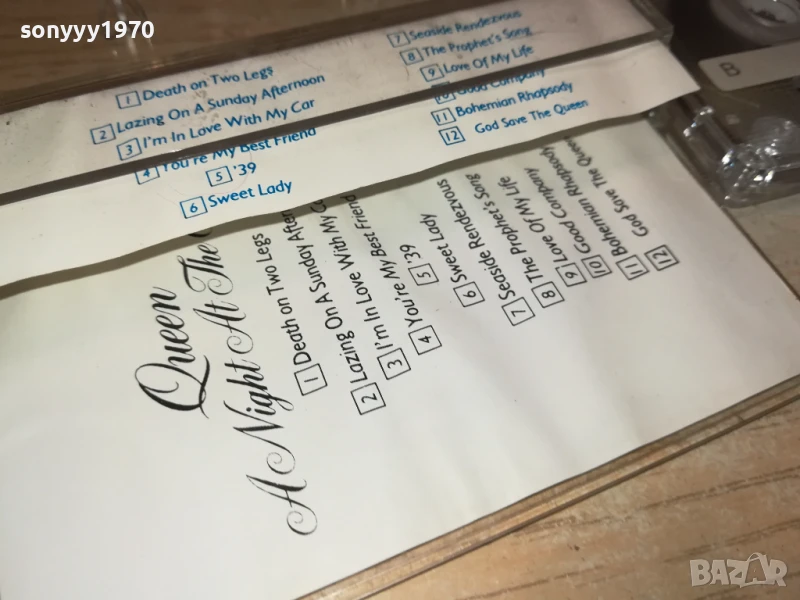 sonyyy1970
1 Death on Two Legs
2 Lazing On A Sunday Afternoon
3 I'm In Love With My Car
4 You're My Best Friend
5 '39
6 Sweet Lady
7 Seaside Rendezvous
8 The Prophet's Song
9 Love Of My Life
10 Good Company
11 Bohemian Rhapsody
12 God Save The Queen
B
Queen
A Night At The
1 Death on Two Legs
2 Lazing On A Sunday After
3 I'm In Love With My Ca
4 You're My Best Friend
5 '39
6 Sweet Lady
7 Seaside Rendezvous
8 The Prophet's Song
9 Love Of My Life
10 Good Company
11 Bohemian Rhapsody
12 God Save The Queen
BAZAR